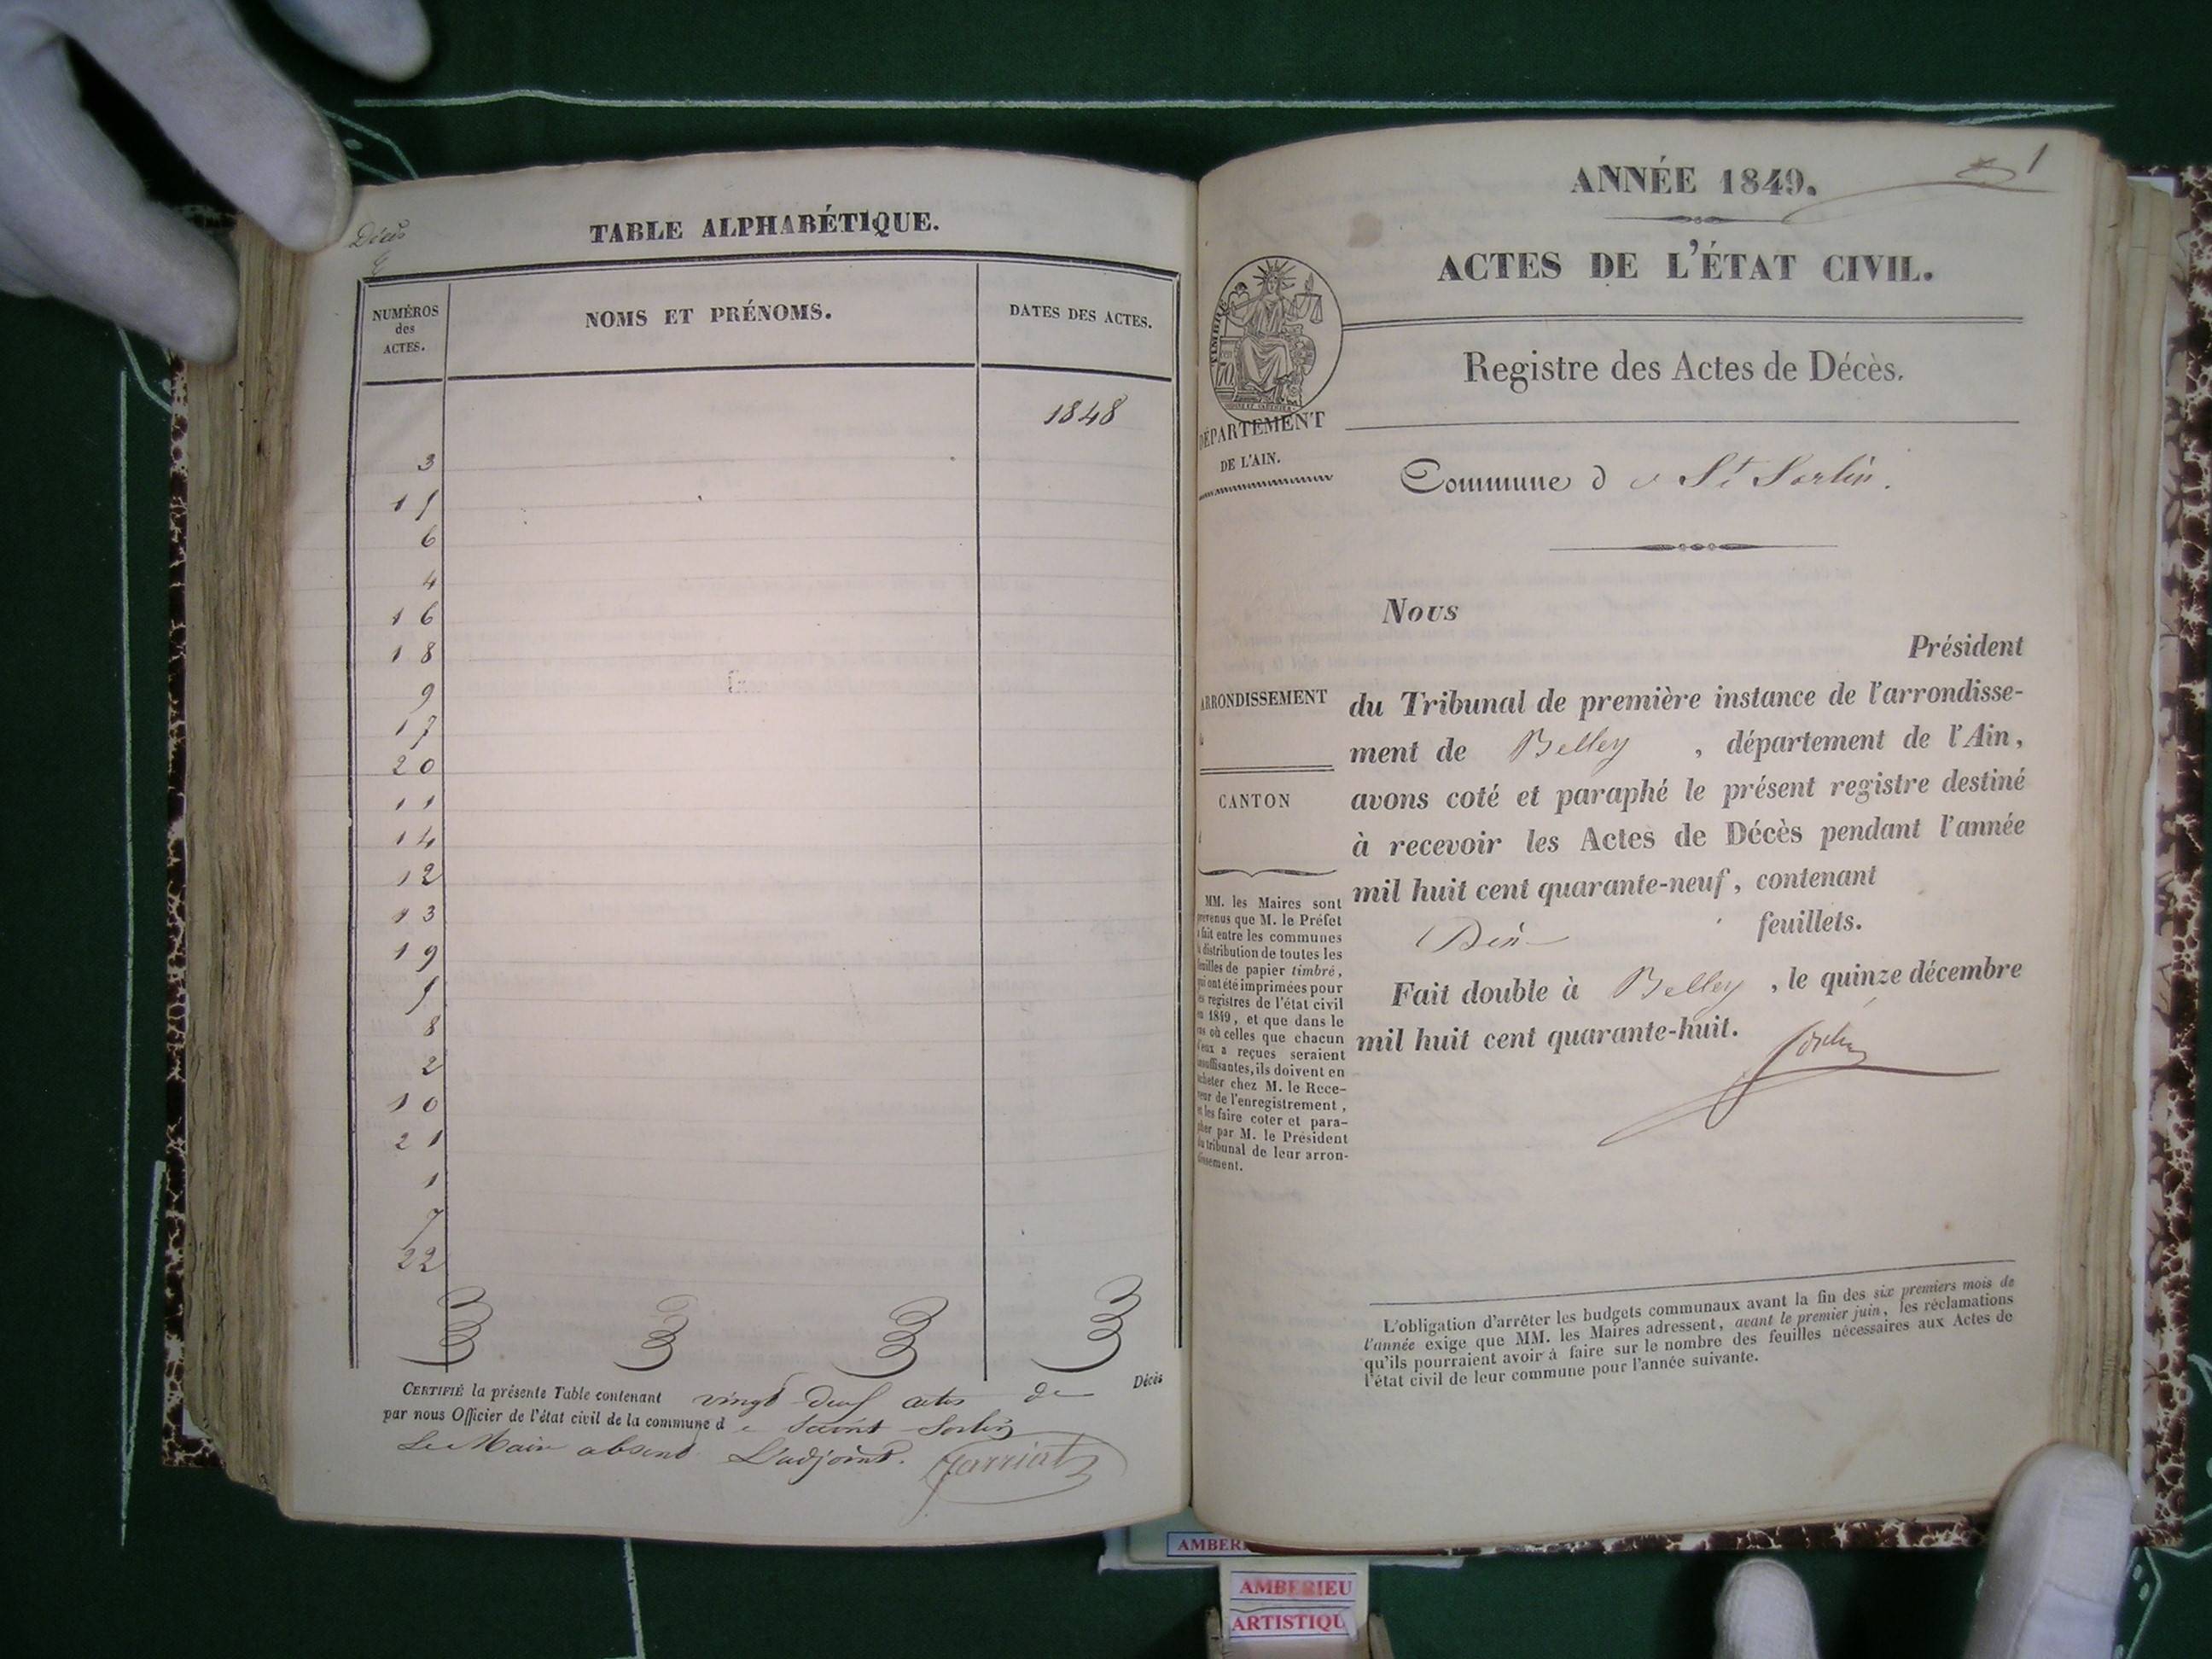 Décès
TABLE ALPHABÉTIQUE.
NUMÉROS
des
ACTES.
NOMS ET PRÉNOMS.
DATES DES ACTES.
1848
3
15
6
4
16
18
9
17
20
11
14
12
13
19
5
8
2
10
21
1
7
22
CERTIFIÉ la présente Table contenant vingt deux actes de Décès
par nous Officier de l'état civil de la commune de Saint Sorlin
Le Maire absent L'adjoint.
ANNÉE 1849.
1
ACTES DE L'ÉTAT CIVIL.
Registre des Actes de Décès.
DÉPARTEMENT
DE L'AIN.
Commune de St Sorlin.
Nous
Président
ARRONDISSEMENT
du Tribunal de première instance de l'arrondisse-
ment de Belley, département de l'Ain,
CANTON
avons coté et paraphé le présent registre destiné
à recevoir les Actes de Décès pendant l'année
mil huit cent quarante-neuf, contenant
Dix feuillets.
Fait double à Belley, le quinze décembre
mil huit cent quarante-huit.
MM. les Maires sont
prévenus que M. le Préfet
a fait entre les communes
la distribution de toutes les
feuilles de papier timbré,
qui ont été imprimées pour
les registres de l'état civil
en 1849, et que dans le
cas où celles que chacun
d'eux a reçues seraient
insuffisantes, ils doivent en
acheter chez M. le Rece-
veur de l'enregistrement,
et les faire coter et para-
pher par M. le Président
du tribunal de leur arron-
dissement.
L'obligation d'arrêter les budgets communaux avant la fin des six premiers mois de
l'année exige que MM. les Maires adressent, avant le premier juin, les réclamations
qu'ils pourraient avoir à faire sur le nombre des feuilles nécessaires aux Actes de
l'état civil de leur commune pour l'année suivante.
AMBERIEU
ARTISTIQU